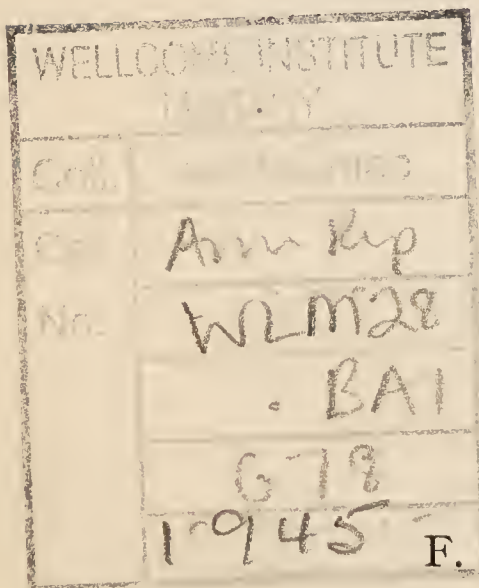 WELLCOME INSTITUTE
LIBRARY
Coll.
Ann Rep
No. WLM28
. BA1
G78
1945 F.